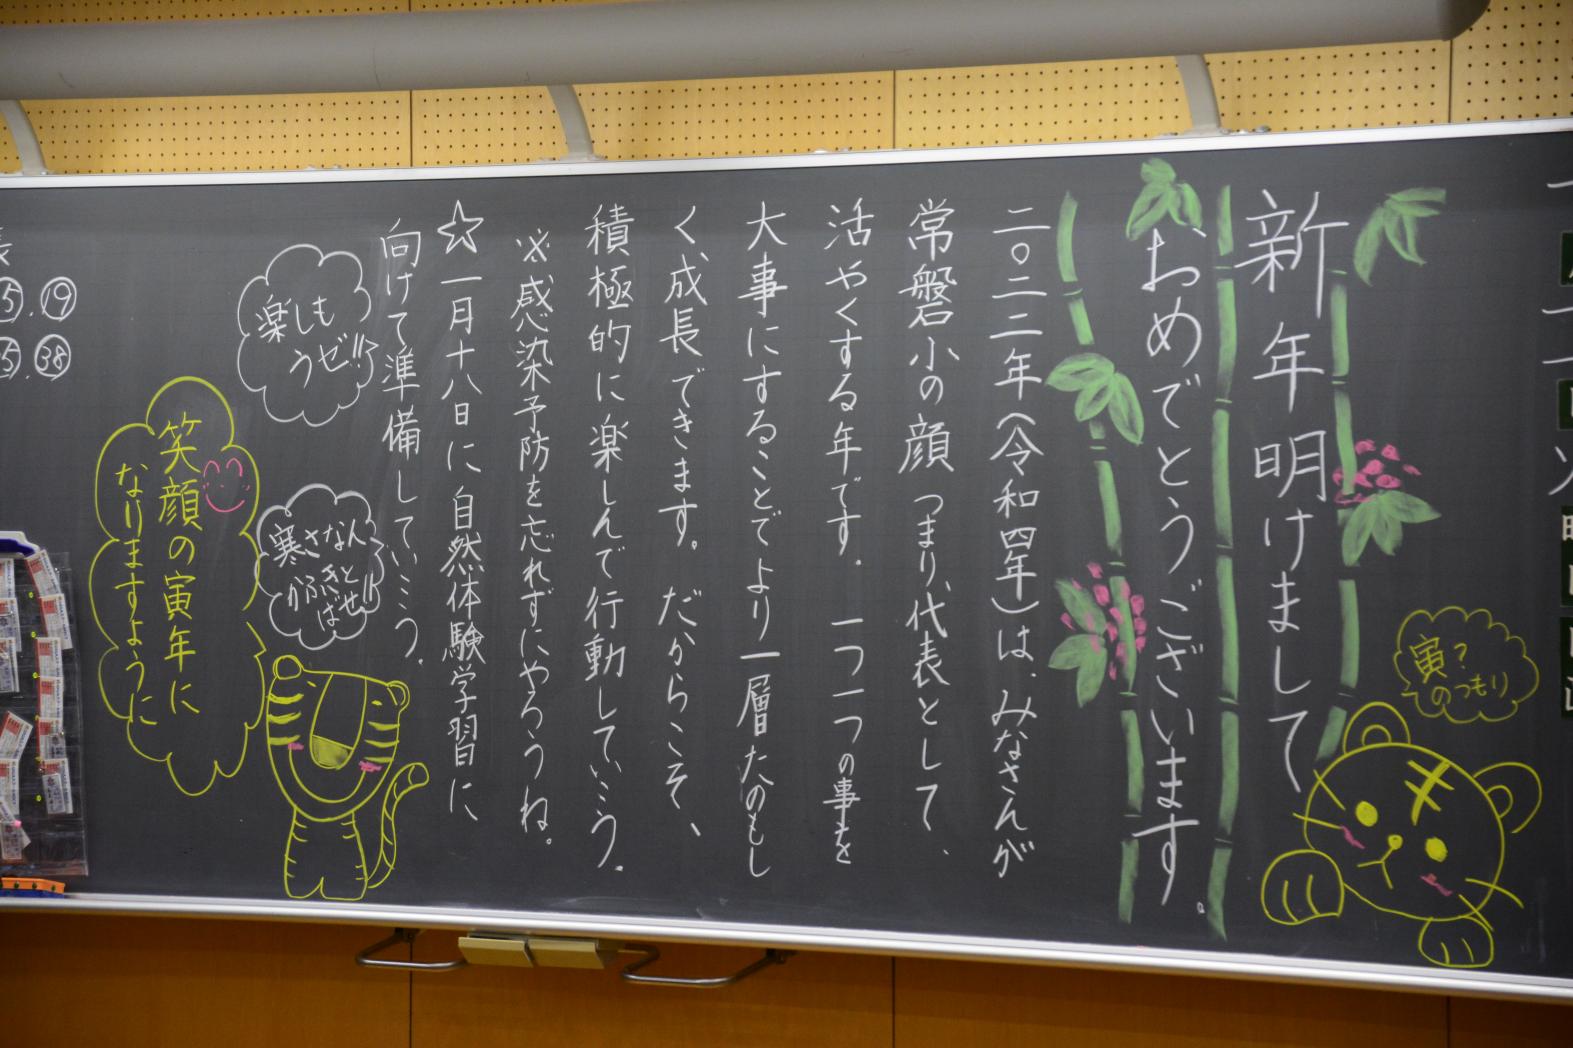 新年明けまして
おめでとうございます。
二〇二二年(令和四年)は、みなさんが
常磐小の顔 つまり、代表として、
活やくする年です。一つ一つの事を
大事にすることでより一層たのもし
く、成長できます。だからこそ、
積極的に楽しんで行動していこう。
※感染予防を忘れずにやろうね。
☆一月十八日に自然体験学習に
向けて準備していこう。
寅?
のつもり
楽しも
うぜ!!
寒さなん
かふきと
ばせ!!
笑顔の寅年に
なりますように
5.19
5.38